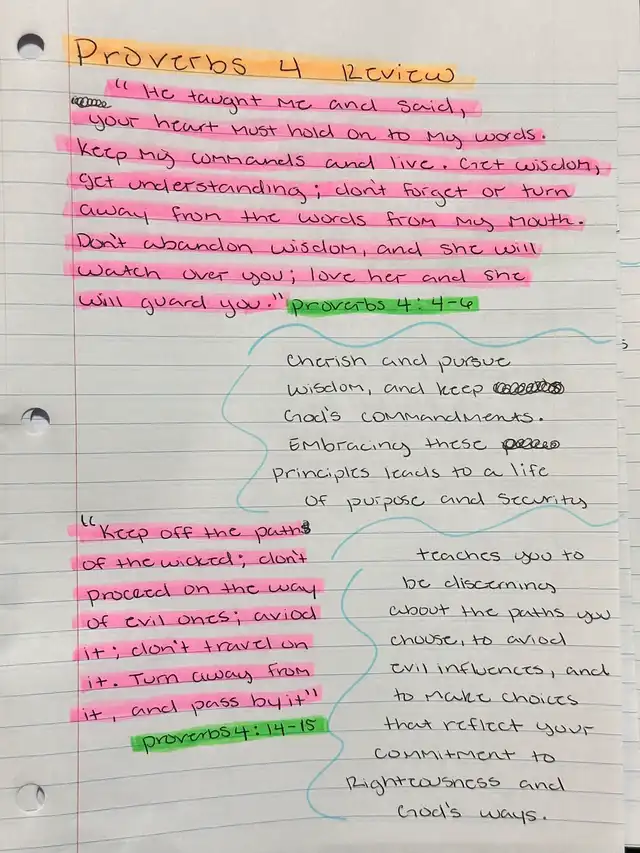 Proverbs 4 Review
"He taught me and said,
your heart must hold on to my words.
Keep my commands and live. Get wisdom,
get understanding; don't forget or turn
away from the words from my mouth.
Don't abandon wisdom, and she will
watch over you; love her and she
will guard you." proverbs 4:4-6
cherish and pursue
wisdom, and keep
God's commandments.
Embracing these
principles leads to a life
of purpose and security
"Keep off the paths
of the wicked; don't
proceed on the way
of evil ones; aviod
it; don't travel on
it. Turn away from
it, and pass by it"
proverbs 4:14-15
teaches you to
be discerning
about the paths you
choose, to aviod
evil influences, and
to make choices
that reflect your
commitment to
Righteousness and
God's ways.